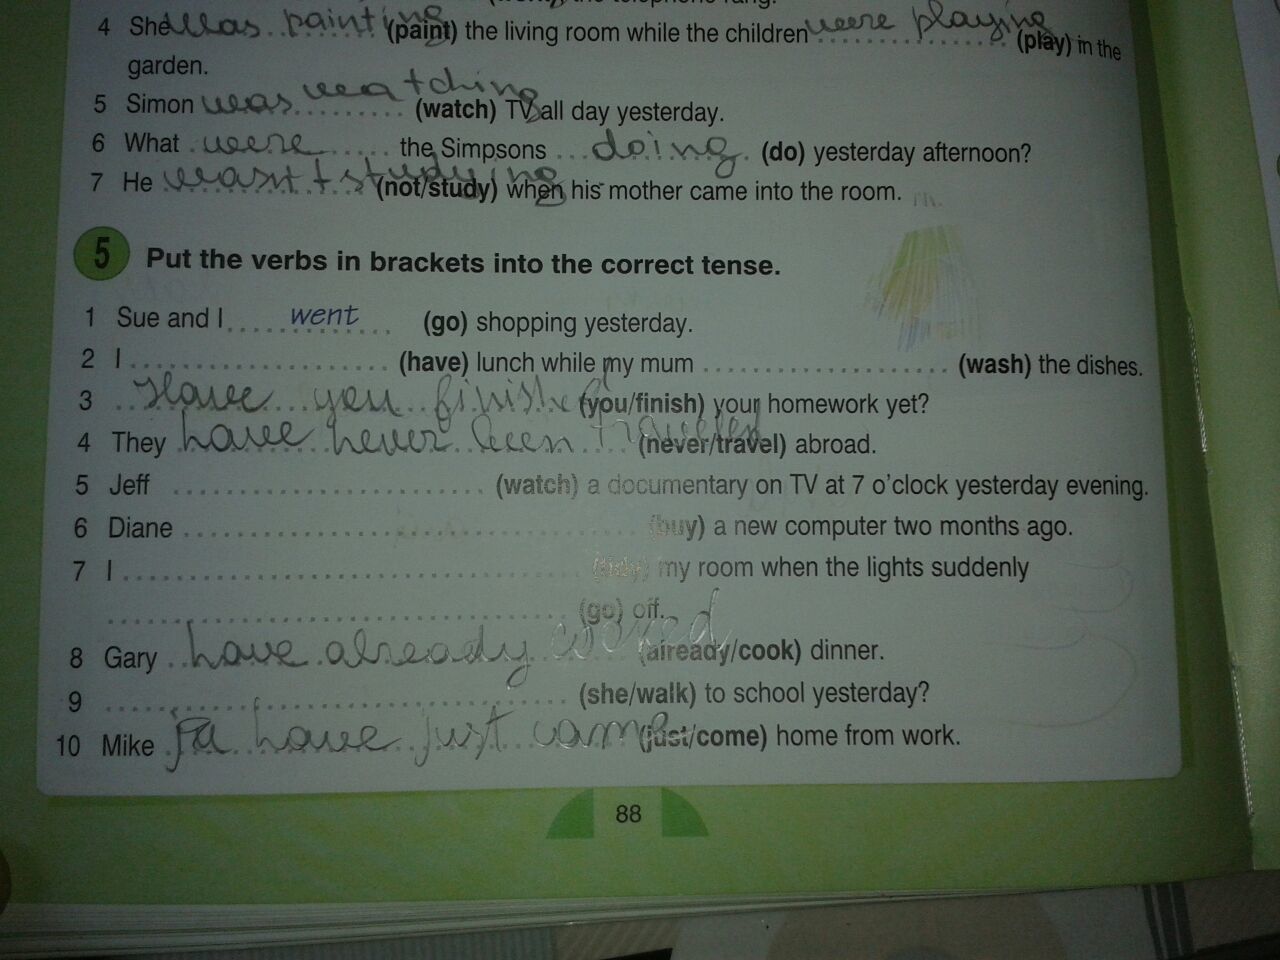 the telephone rang.
4 She was painting (paint) the living room while the children were playing (play) in the
garden.
5 Simon was watching (watch) TV all day yesterday.
6 What were the Simpsons doing (do) yesterday afternoon?
7 He wasn't studying (not/study) when his mother came into the room.
5 Put the verbs in brackets into the correct tense.
1 Sue and I went (go) shopping yesterday.
2 I (have) lunch while my mum (wash) the dishes.
3 Have you finished (you/finish) your homework yet?
4 They have never been travelled (never/travel) abroad.
5 Jeff (watch) a documentary on TV at 7 o'clock yesterday evening.
6 Diane (buy) a new computer two months ago.
7 I (tidy) my room when the lights suddenly
(go) off.
8 Gary have already cooked (already/cook) dinner.
9 (she/walk) to school yesterday?
10 Mike have just came (just/come) home from work.
88